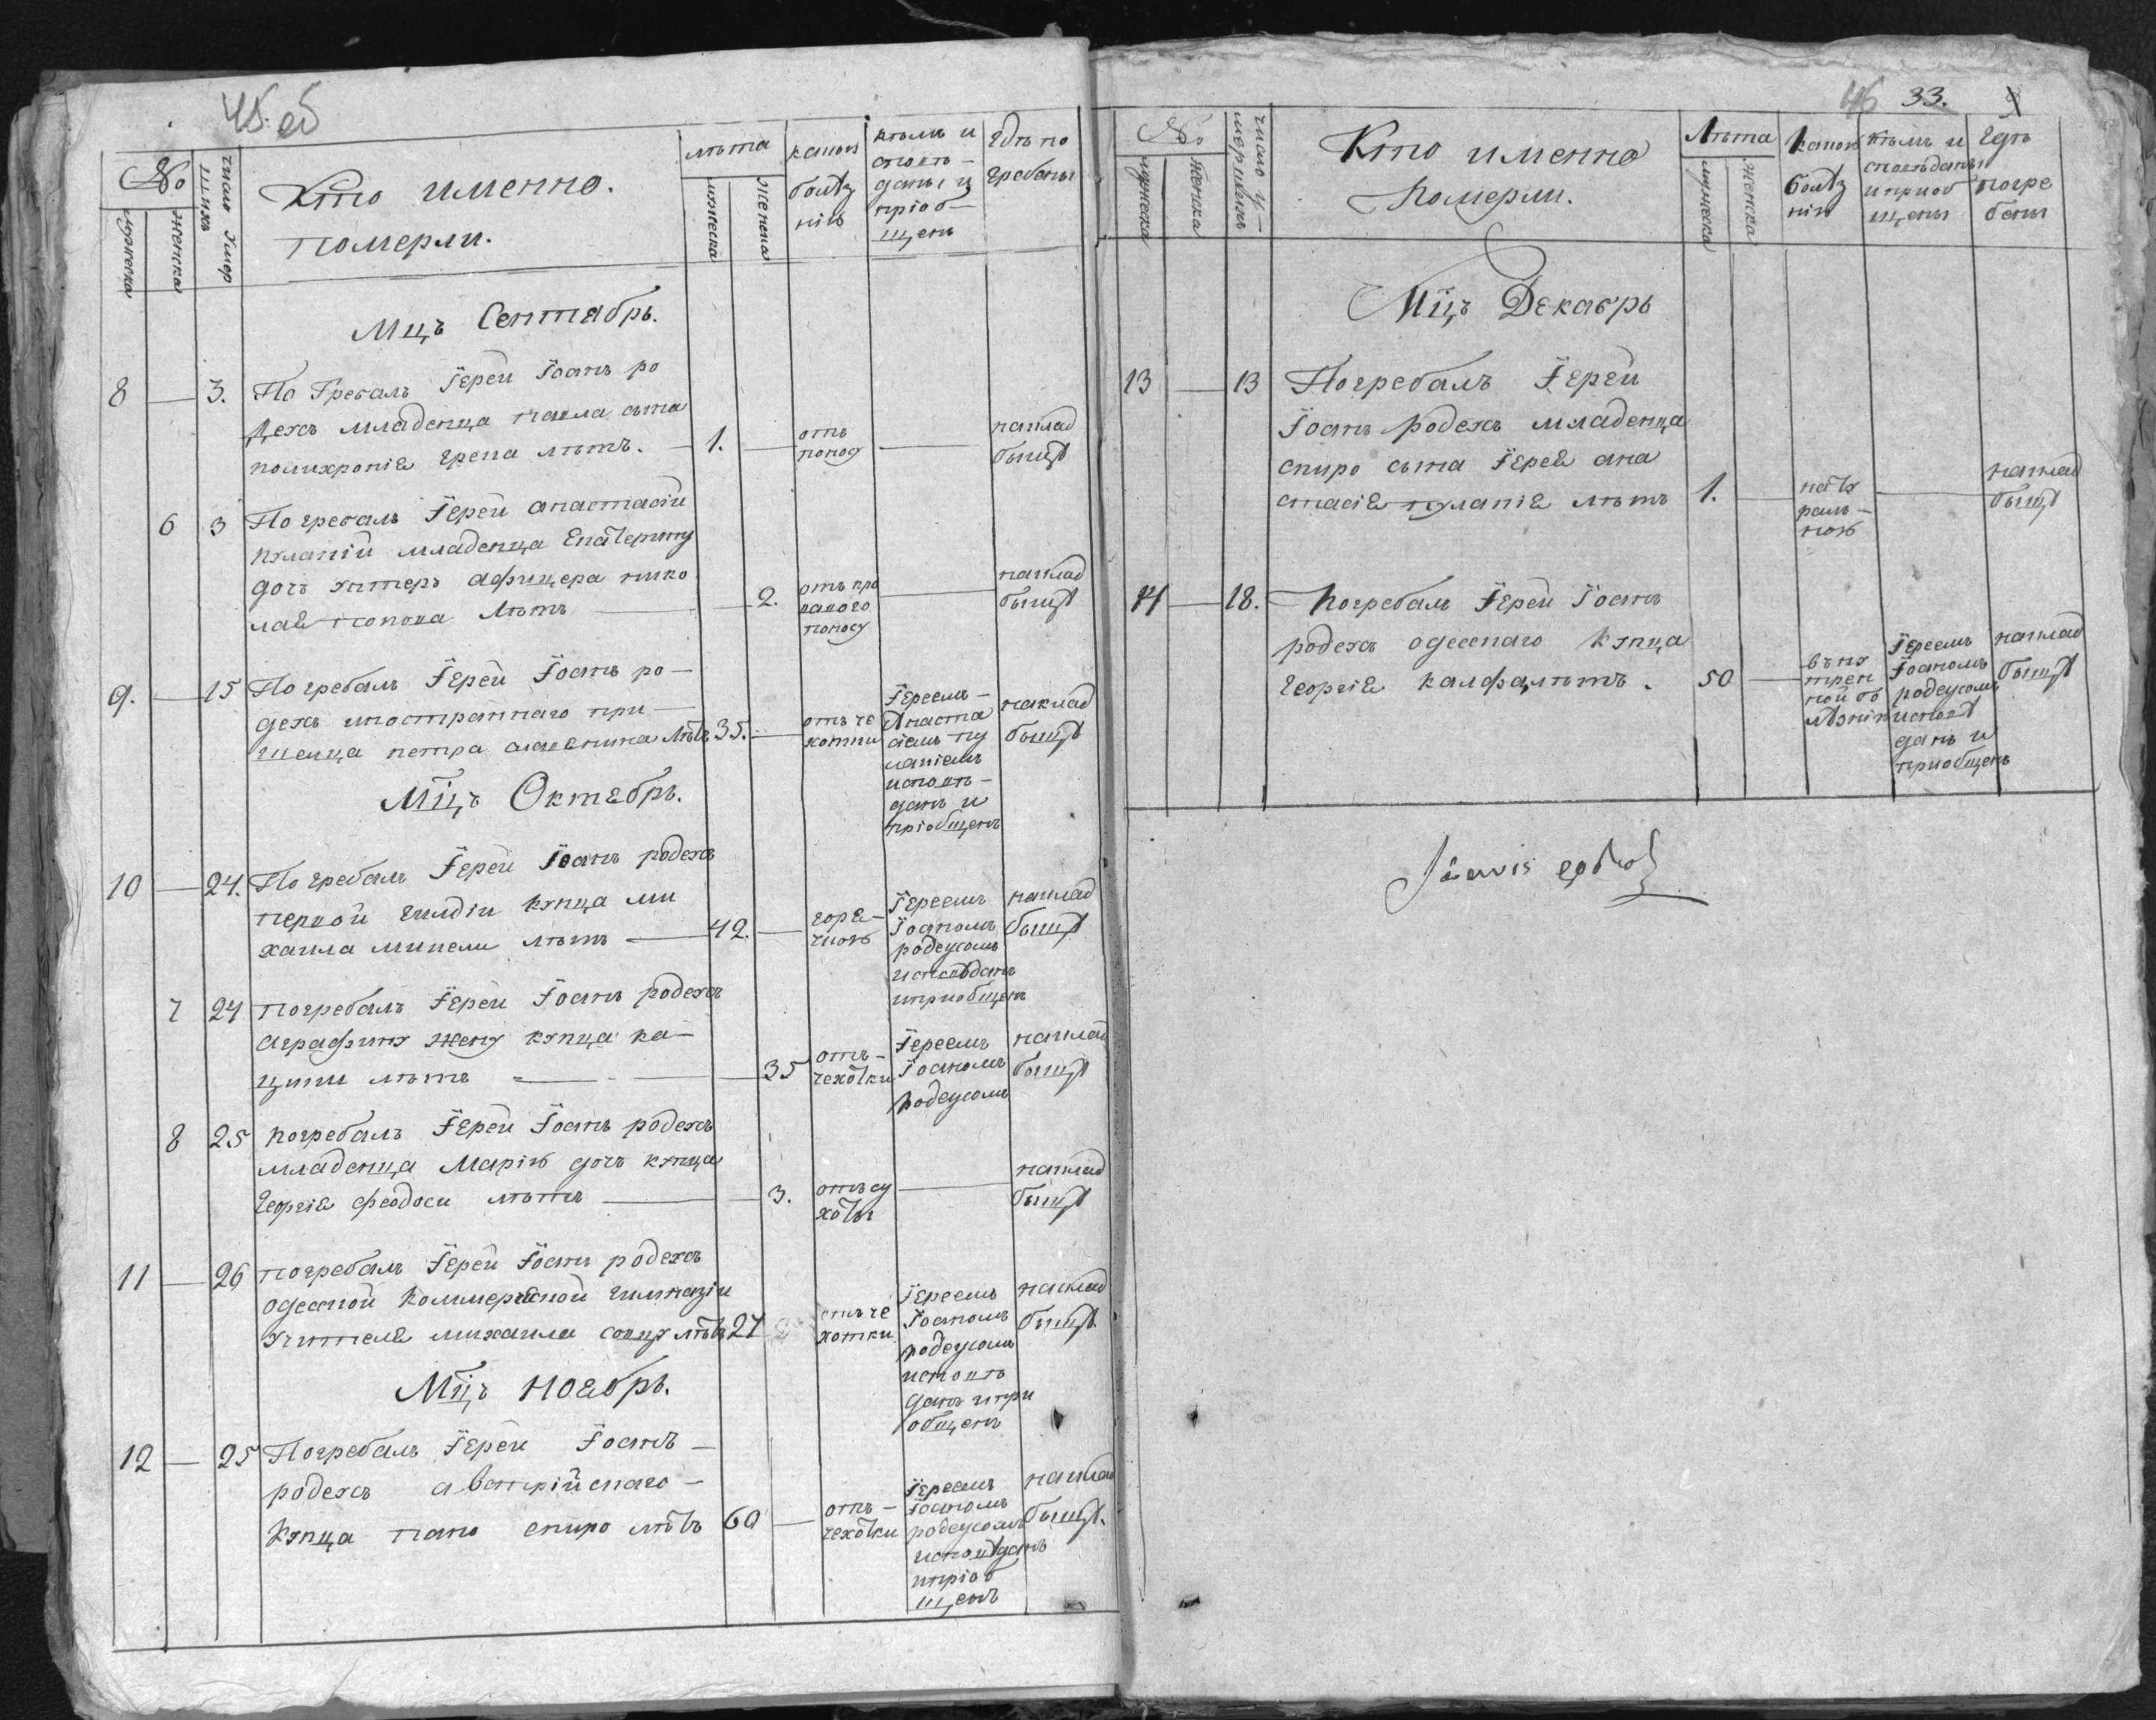 45 об
№
мужеска
женска
число умер
шихъ
Кто именно.
померли.
лѣта
мужеска
женска
какою
болѣз
нію
кѣмъ и
сповѣ-
даны и
пріоб-
щены
гдѣ по
гребены
Мцъ Сентябрь.
8 — 3. Погребалъ Іерей Іоанъ ро
дехъ младенца павла сына
полихронія грека лѣтъ. — 1. — отъ поносу — накладбыще
6 3 Погребалъ Іерей анастасій
пуланій младенца Екатерину
дочь унтеръ афицера нико
лая попова лѣтъ — 2. отъ кровавого поносу — накладбыще
9. — 15 Погребалъ Іерей Іоанъ ро-
дехъ иностраннаго при-
шелца петра лѣтъ 35. — отъ чехотки Іереемъ Анастасіемъ пуланіемъ исповѣданъ и пріобщенъ накладбыще
Мцъ Октябрь.
10 — 24. Погребалъ Іерей Іоанъ родехъ
первой гилдіи купца ми
хаила минели лѣтъ — 42. — горячкою Іереемъ Іоаномъ родеусомъ исповѣданъ и приобщенъ накладбыще
7 24 погребалъ Іерей Іоанъ родехъ
аграфину жену купца ка-
цики лѣтъ — 35 отъ чехотки Іереемъ Іоаномъ родеусомъ накладбыще
8 25 погребалъ Іерей Іоанъ родехъ
младенца Марію дочь купца
георгія феодоси лѣтъ — 3. отъ сухоты — накладбыще
11 — 26 погребалъ Іерей Іоанъ родехъ
одеской коммерческой гимназіи
учителя михаила лѣтъ 27 отъ чехотки Іереемъ Іоаномъ родеусомъ исповѣданъ и приобщенъ накладбыще
Мцъ Ноябрь.
12 — 25 Погребалъ Іерей Іоанъ —
родехъ австрійскаго —
купца пано спиро лѣтъ 60 — отъ чехотки Іереемъ Іоаномъ родеусомъ исповѣданъ и пріобщенъ накладбыще.
46 33.
№
мужеска
женска
число у-
мершихъ
Кто именно
померли.
Лѣта
мужеска
женска
какою
болѣз
нію
кѣмъ и
сповѣданы
и приоб
щены
гдѣ
погре
бены
Мцъ Декабрь
13 — 13 Погребалъ Іерей
Іоанъ родехъ младенца
спиро сына Іерея ана
стасія пуланія лѣтъ 1. — натуральною — накладбыще
14 — 18. Погребалъ Іерей Іоанъ
родехъ одескаго купца
георгія калфа, лѣтъ. 50 — внутреной болѣзни Іереемъ Іоаномъ родеусомъ исповѣданъ и приобщенъ накладбыще